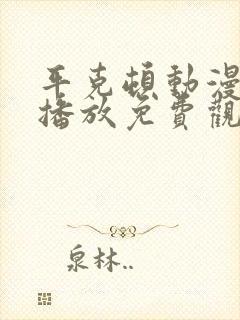 平克頓動漫
播放免費觀
泉林..